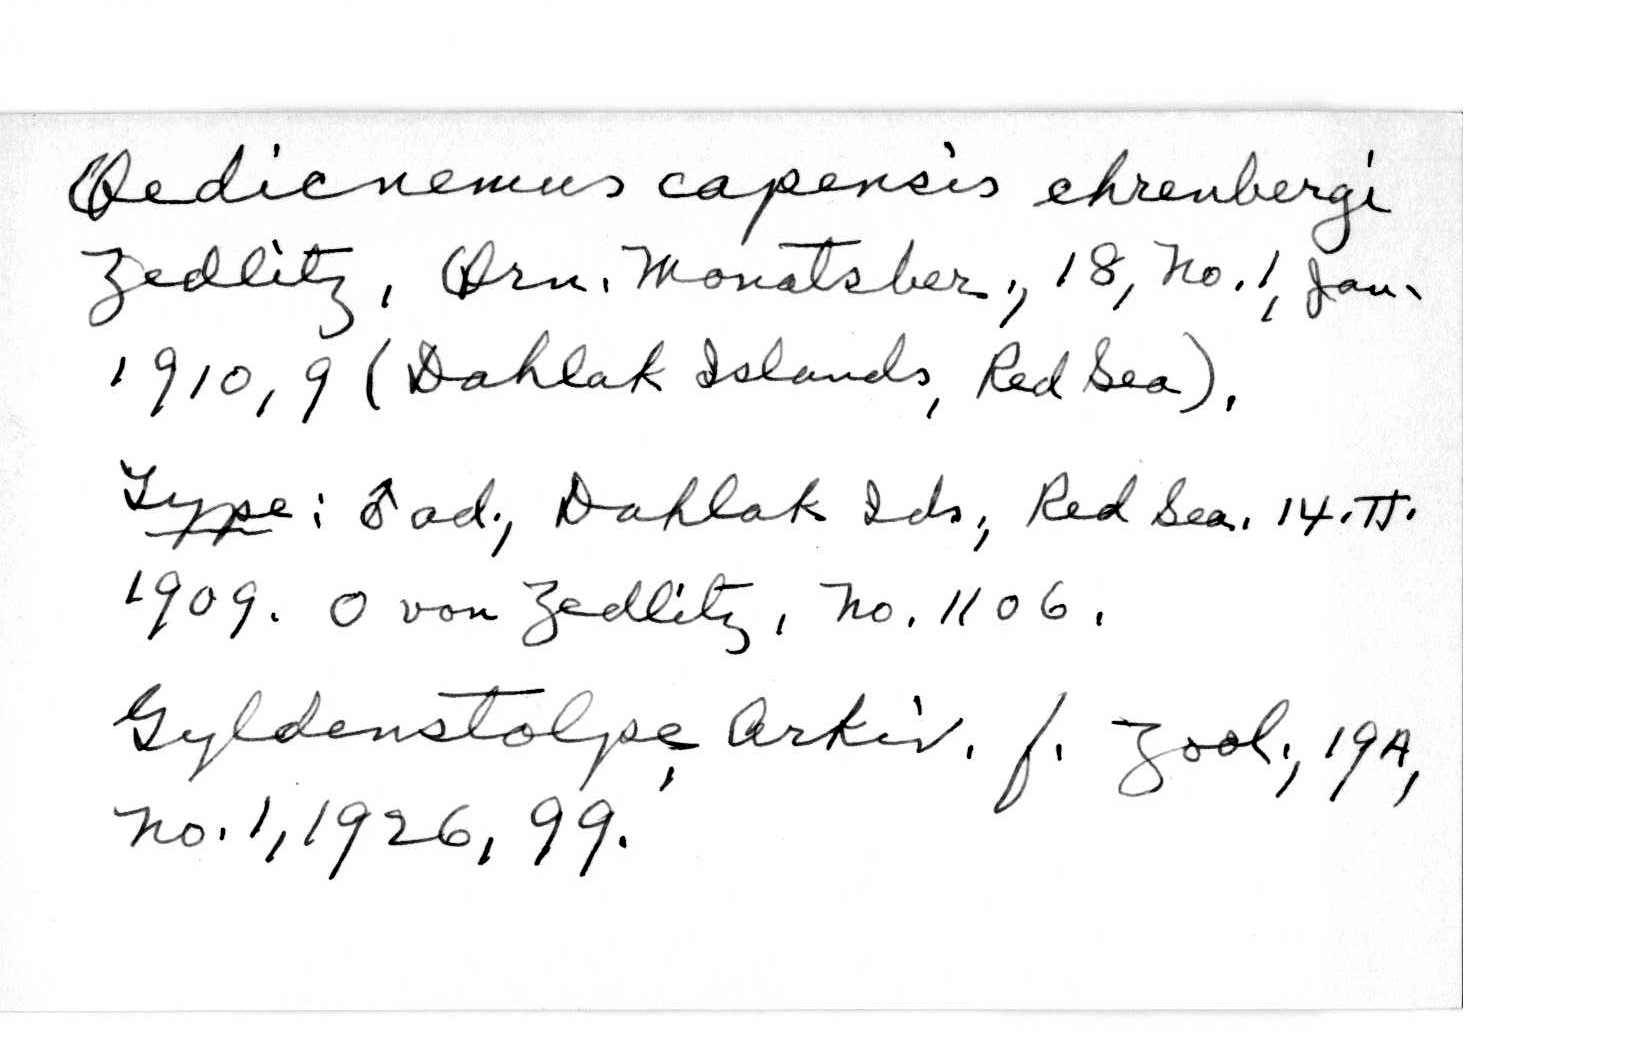 Oedicnemus capensis ehrenbergi
Zedlitz, Orn. Monatsber., 18, No. 1, Jan.
1910, 9 (Dahlak Islands, Red Sea).
Type: ♂ ad., Dahlak Ids., Red Sea. 14.II.
1909. O von Zedlitz, No. 1106.
Gyldenstolpe, Arkiv. f. Zool., 19A,
No. 1, 1926, 99.